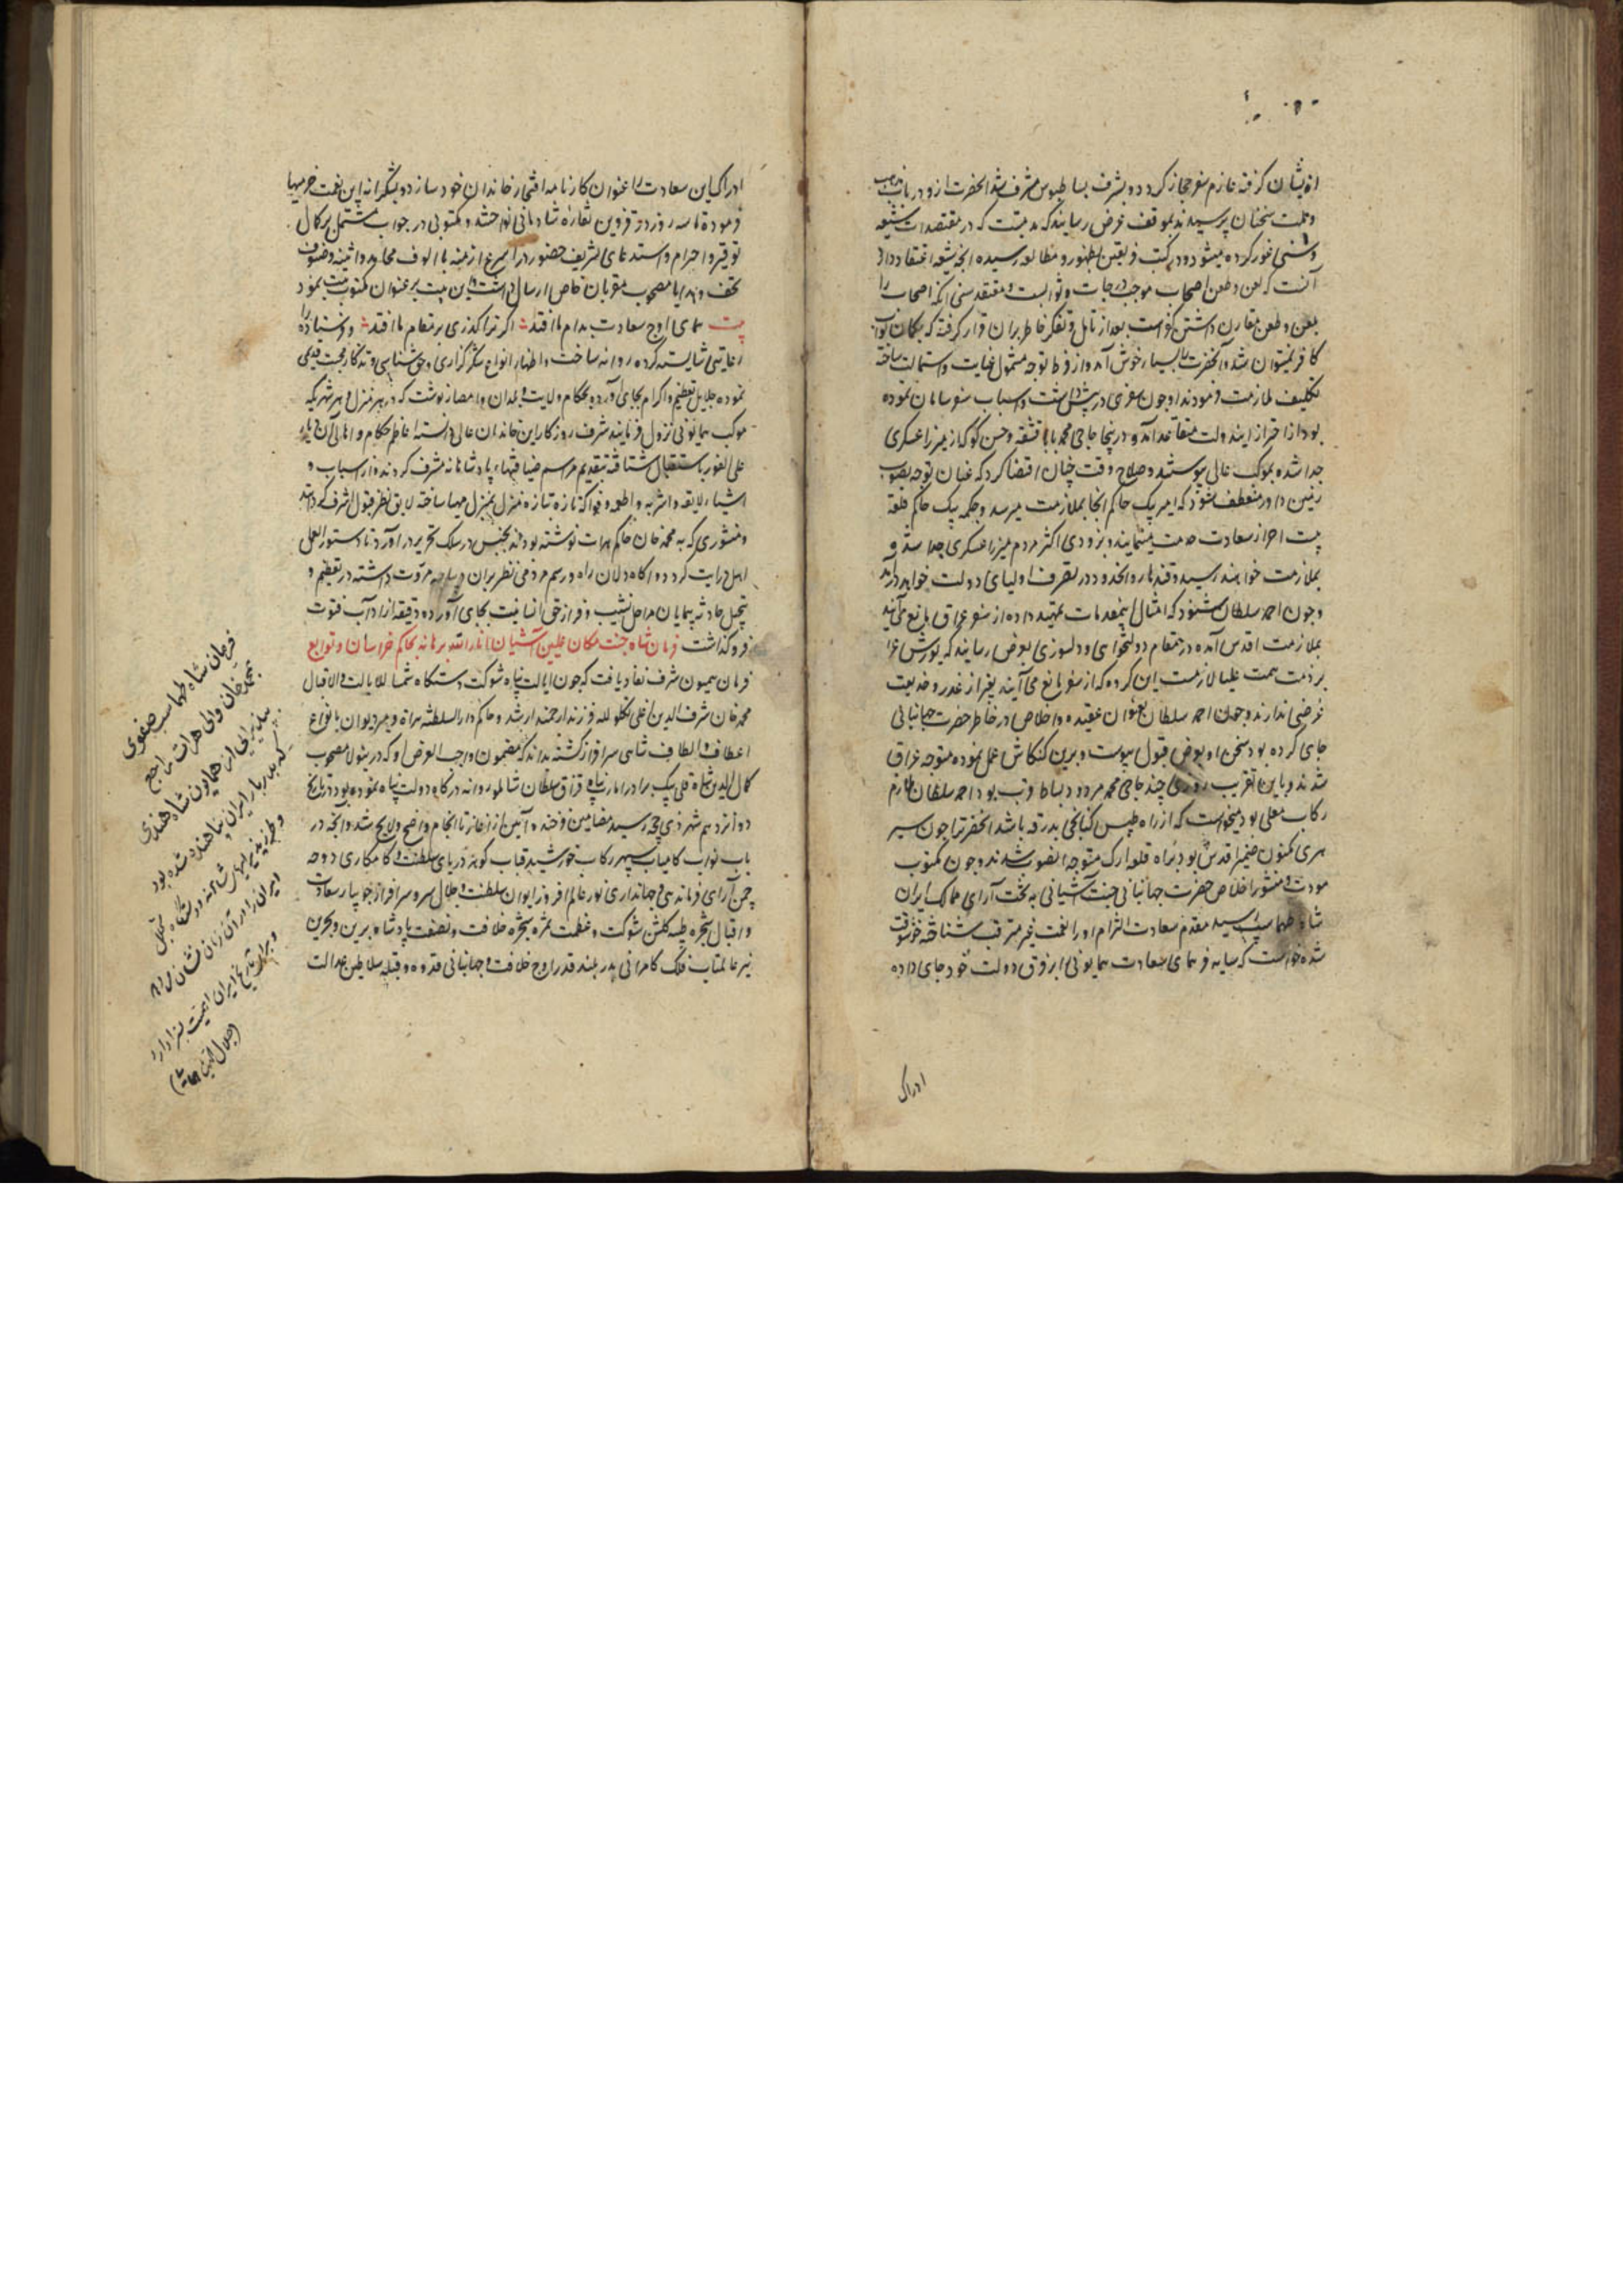 ازیشان گرفته عازم سفر حجاز گردد و بشرف بساط بوس مشرف شد آنحضرت ازو در باب مذهب
و ملت سخنان پرسیدند بموقف عرض رسانید که مدتیست که در معتقدات شیعه
و سنی غور کرده میشود و در کتب فریقین بظهور و مطالعه رسیده آنچه شیعه اعتقاد دارد
آنست که لعن و طعن اصحاب موجب درجات و ثوابست و معتقد سنی آنکه اصحاب را
بلعن و طعن مقارن داشتن کفر است بعد از تامل و تفکر خاطر بران قرار گرفته که بگمان ثواب
کافر نمیتوان شد و آنحضرت را بسیار خوش آمد و از فرط توجه مشمول عنایت و استمالت ساخته
تکلیف ملازمت فرمودند او چون سفری در پیش داشت و اسباب سفر سامان نموده
بود از احراز ایندولت متقاعد آمد و درینجا حاجی محمد بابا قشقه و حسن کوکه از میرزا عسکری
جدا شده بموکب عالی پیوستند و صلاح وقت چنان اقتضا کرد که عنان توجه بصوب
زمین داور منعطف شود که امیر بیک حاکم آنجا بملازمت میرسد و چلمه بیک حاکم قلعه
بست احراز سعادت خدمت مینمایند و بزودی اکثر مردم میرزا عسکری جدا شده
بملازمت خواهند رسید و قندهار و آنحدود در تصرف اولیای دولت خواهد درآمد
و چون احمد سلطان شنود که امثال اینمقدمات تمهید داده از سفر عراق مانع می‌آیند
بملازمت اقدس آمده در مقام دولتخواهی و دلسوزی بعرض رسانید که یورش عراق
بر ذمت همت علیا لازمست این گروه که از سفر مانع می‌آیند بغیر از غدر و خدیعت
غرضی ندارند و چون احمد سلطان بعنوان عقیده و اخلاص در خاطر حضرت جهانبانی
جای کرده بود سخن او بعرض قبول پیوست و برین کنکاش عمل نموده متوجه عراق
شدند و باین تقریب روزی چند حاجی محمد مردود بساط قرب بود احمد سلطان ملازم
رکاب معلی بود میخواست که از راه طبس گیلکی بدرقه باشد آنحضرت را چون سیر
هری مکنون ضمیر اقدس بود براه قلعه اوک متوجه آنصوب شدند و چون مکتوب
مودت و منشور اخلاص حضرت جهانبانی جنت آشیانی به تخت آرای ممالک ایران
شاه طهماسب رسید مقدم سعادت التزام او را نعمت غیر مترقب شناخته خوشوقت
شده خواست که سایه فر همای سعادت همایونی را بر فرق دولت خود جای داده
ادراک
ادراک این سعادت را عنوان کارنامه افتخار خاندان خود سازد و بشکرانه این نعمت خرمیها
فرموده تا سه روز در قزوین نقاره شادمانی نواختند و مکتوبی در جواب مشتمل بر کمال
توقیر و احترام و استدعای تشریف حضور در اسرع ازمنه با الوف محامد و اثنیه و صنوف
تحف و هدایا مصحوب مقربان خاص ارسال داشت و این بیت بر عنوان مکتوب ثبت نمود
بیت همای اوج سعادت بدام ما افتد اگر ترا گذری بر مقام ما افتد و فرستاده را
رعایتی شایسته کرده روانه ساخت و اظهار انواع شکرگزاری و حق شناسی و تذکار محبت قدیمی
نموده جلایل تعظیم و اکرام بجای آورد و بحکام ولایت و بلدان و امصار نوشت که در هر منزل و هر شهر که
موکب همایونی نزول فرمایند شرف روزگار این خاندان عالی دانسته اعاظم حکام و اهالی آن دیار
علی الفور باستقبال شتافته بتقدیم مراسم ضیافتهاء پادشاهانه مشرف گردند و از اسباب و
اشیاء لایقه و اشربه و اطعمه و فواکه تازه تازه منزل بمنزل مهیا ساخته لایق نظر قبول اشرف گردانند
و منشوری که به محمد خان حاکم هرات نوشته بودند بجنس در سلک تحریر درآورد تا دستور العمل
اهل درایت گردد و آگاه دلان راه و رسم مردمی نظر بران دیباجه مروت داشته در تعظیم و
تبجیل حادثه پیمایان مراحل نشیب و فراز حق انسانیت بجای آورده دقیقه از آداب فتوت
فرو گذاشت فرمان شاه جنت مکان علیین آشیان انار الله برهانه بحاکم خراسان و توابع
فرمان همیون شرف نفاذ یافت که چون ایالت پناه شوکت دستگاه شمسا للایالت و الاقبال
محمد خان شرف الدین اغلی تکلو لله فرزند ارجمند ارشد و حاکم دارالسلطنه هراة و میر دیوان بانواع
اعطاف و الطاف شاهی سرافراز گشته بداند که مضمون واجب العرض او که در ینولا مصحوب
کمال الدین شاه قلی بیک برادر امارت پناه قزاق سلطان شاملو روانه درگاه دولت پناه نموده بود در تاریخ
دوازدهم شهر ذی حجه رسید مضامین فرخنده آیین از آغاز تا انجام واضح و لایح شد و آنچه در
باب نواب کامیاب سپهر رکاب خورشید قباب گوهر دریای سلطنت و کامکاری دوحه
چمن آرای فرماندهی و جهانداری نور عالم افروز ایوان سلطنت و جلال سرو سرافراز جویبار سعادت
و اقبال شجره طیبه گلشن شوکت و عظمت ثمره شجره خلافت و نصفت پادشاه برین و بحرین
نیر عالمتاب فلک کامرانی بدر بلند قدر اوج خلافت و جهانبانی قدوه و قبله سلاطین عدالت
فرمان شاه طهماسب صفوی
بمحمدخان والی هرات راجع
پذیرائی از همایون شاه هندی
که بدربار ایران پناهنده شده بود
ایران را در آن زمان نشان میدهد
و برای تاریخ ایران اهمیت بسزا دارد